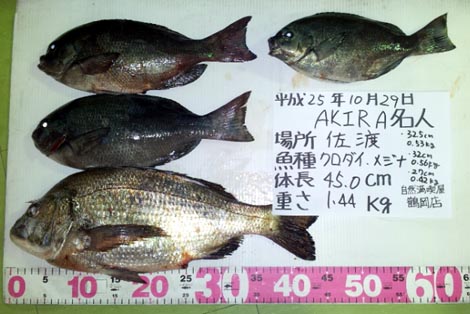 平成25年10月29日
AKIRA名人
場所 佐渡
魚種 クロダイ・メジナ
体長 45.0cm
重さ 1.44Kg
・32.5cm
0.53kg
・32cm
0.56kg
・27cm
0.42kg
自然満喫屋
鶴岡店
0 5 10 15 20 25 30 35 40 45 50 55 60